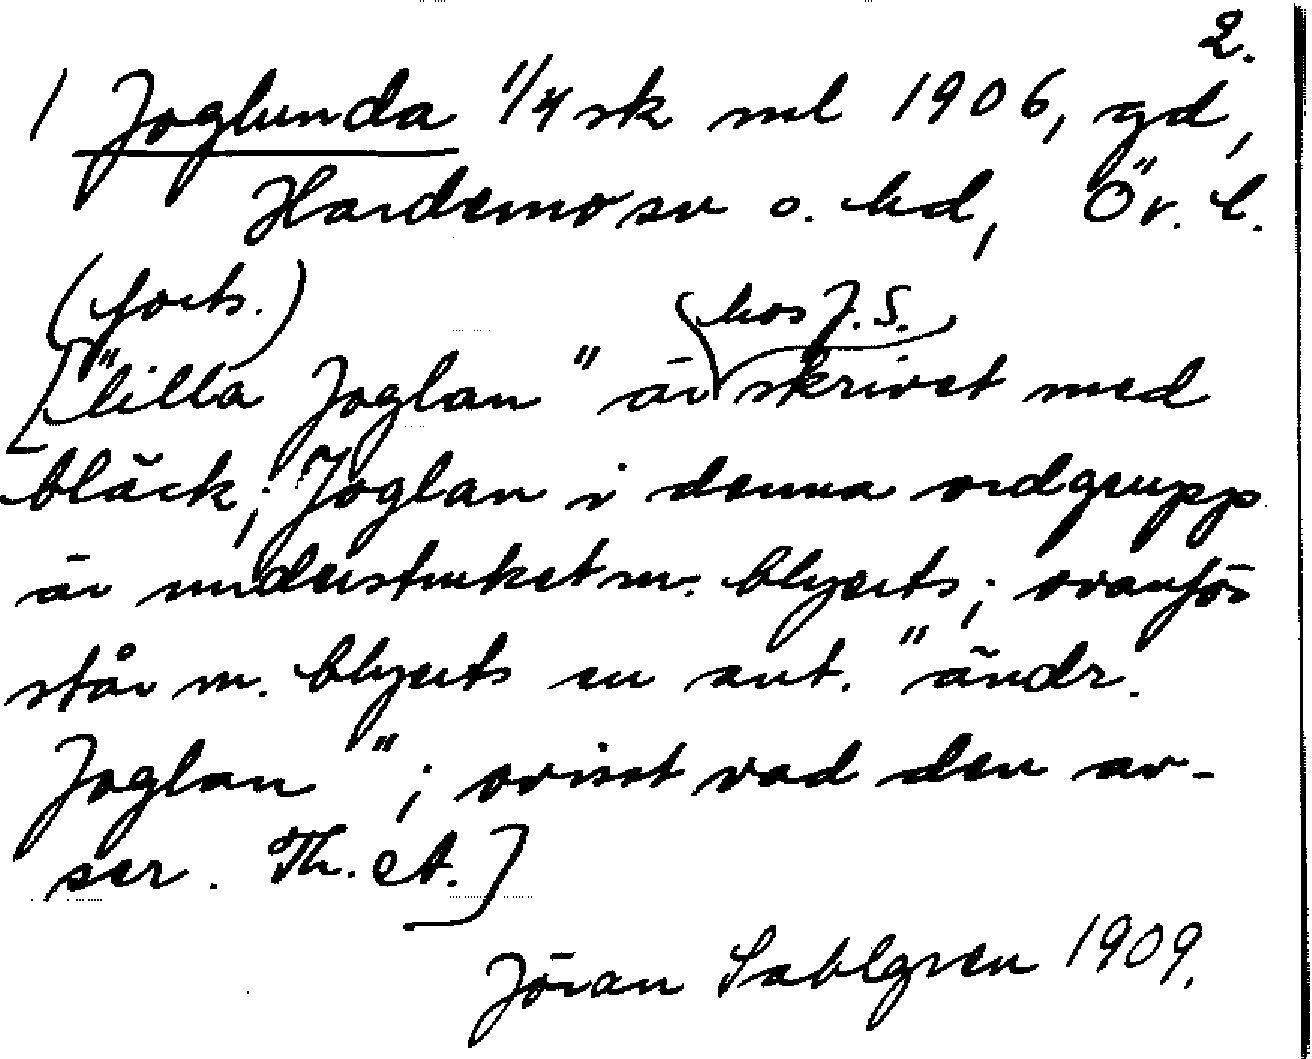 2.
1 Joglunda 1/4 sk ml 1906, gd,
Hardemo sn o. hd, Ör. l.
(forts.)
hos J. S.
["lilla Joglan" är skrivet med
bläck; Joglan i denna ordgrupp
är understruket m. blyerts; ovanför
står m. blyerts en ant. "ändr.
Joglan"; ovisst vad den av-
ser. Th. A.]
Jöran Sahlgren 1909.